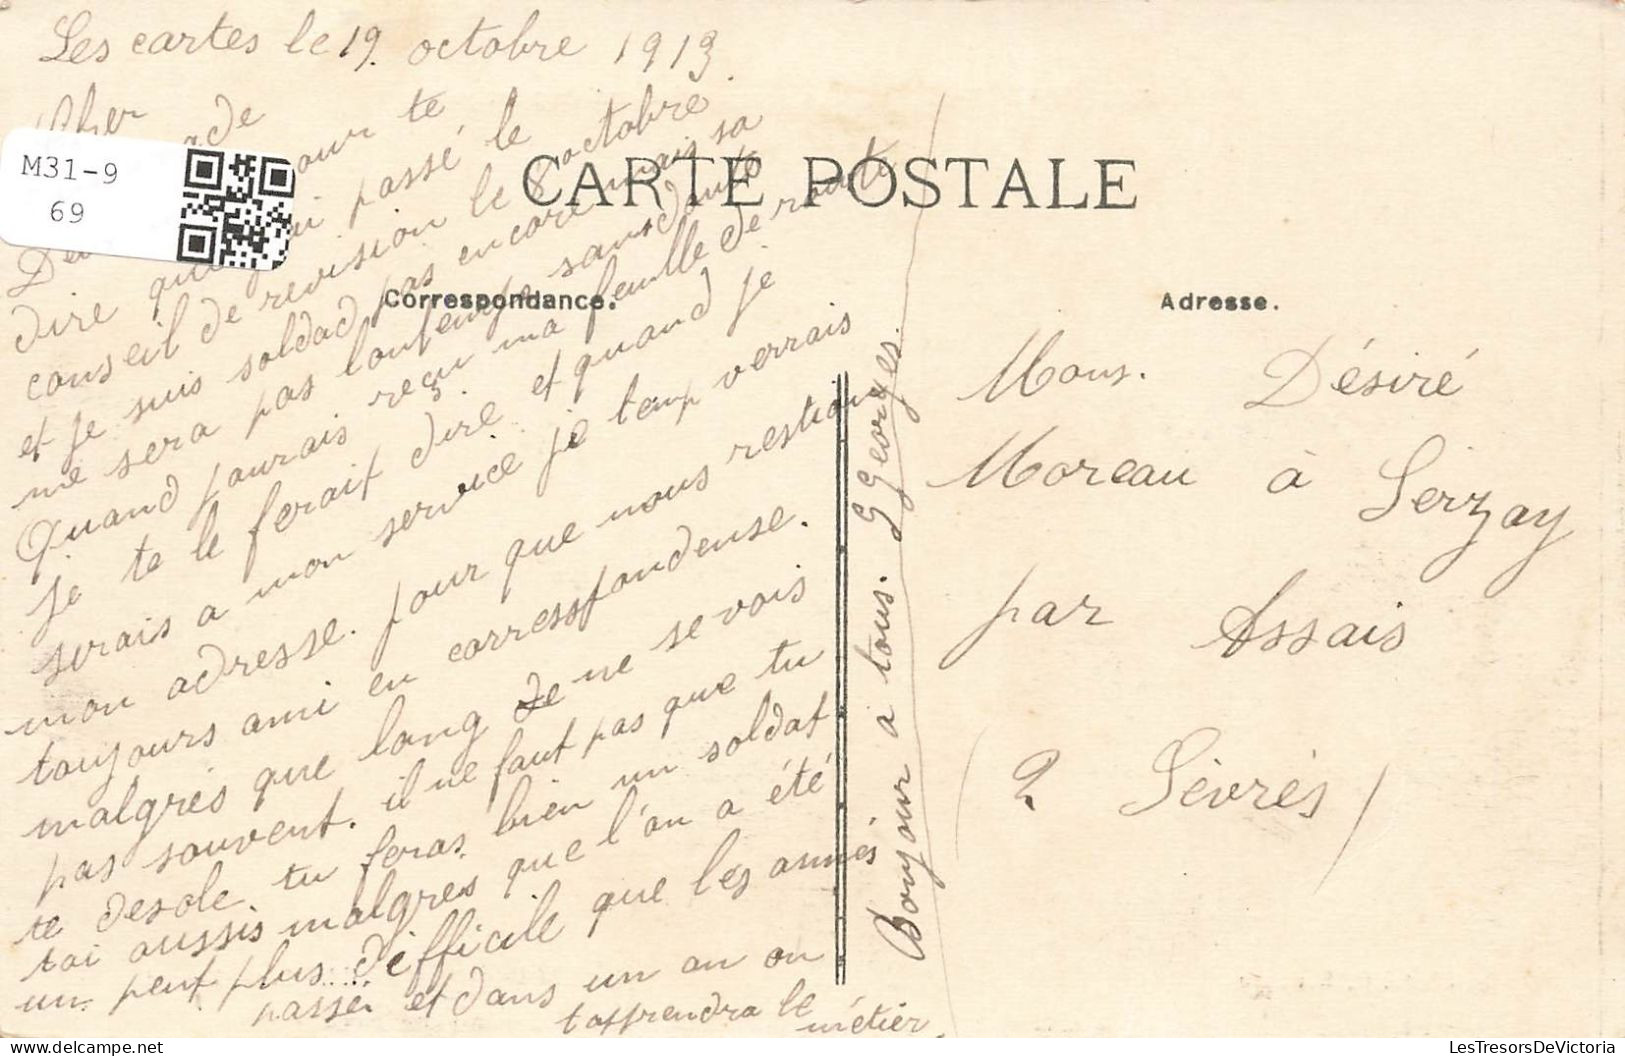 Les cartes le 19 octobre 1913
Cher
ade
De pour te
dire que j'ai passé le
conseil de revision le 8 octobre
et je suis soldad pas encore mais sa
me sera pas lontemps sans doute
Quand j'aurais reçu ma feuille de route
je te le ferait dire et quand je
serais a mon service je t'enverrais
mon adresse. pour que nous restions
toujours ami en corresspondense.
malgrés que lang De ne se vois
pas souvent. il ne faut pas que tu
te desole. tu feras bien un soldat
toi aussis malgres que l'on a été
un peut plus difficile que les annés
passée et dans un an on
t'apprendra le
métier.
Bonjour a tous. G Georges.
CARTE POSTALE
Correspondance.
Adresse.
Mons. Désiré
Moreau à Serzay
par Assais
(2 Sèvres)
M31-9
69
LesTresorsDeVictoria